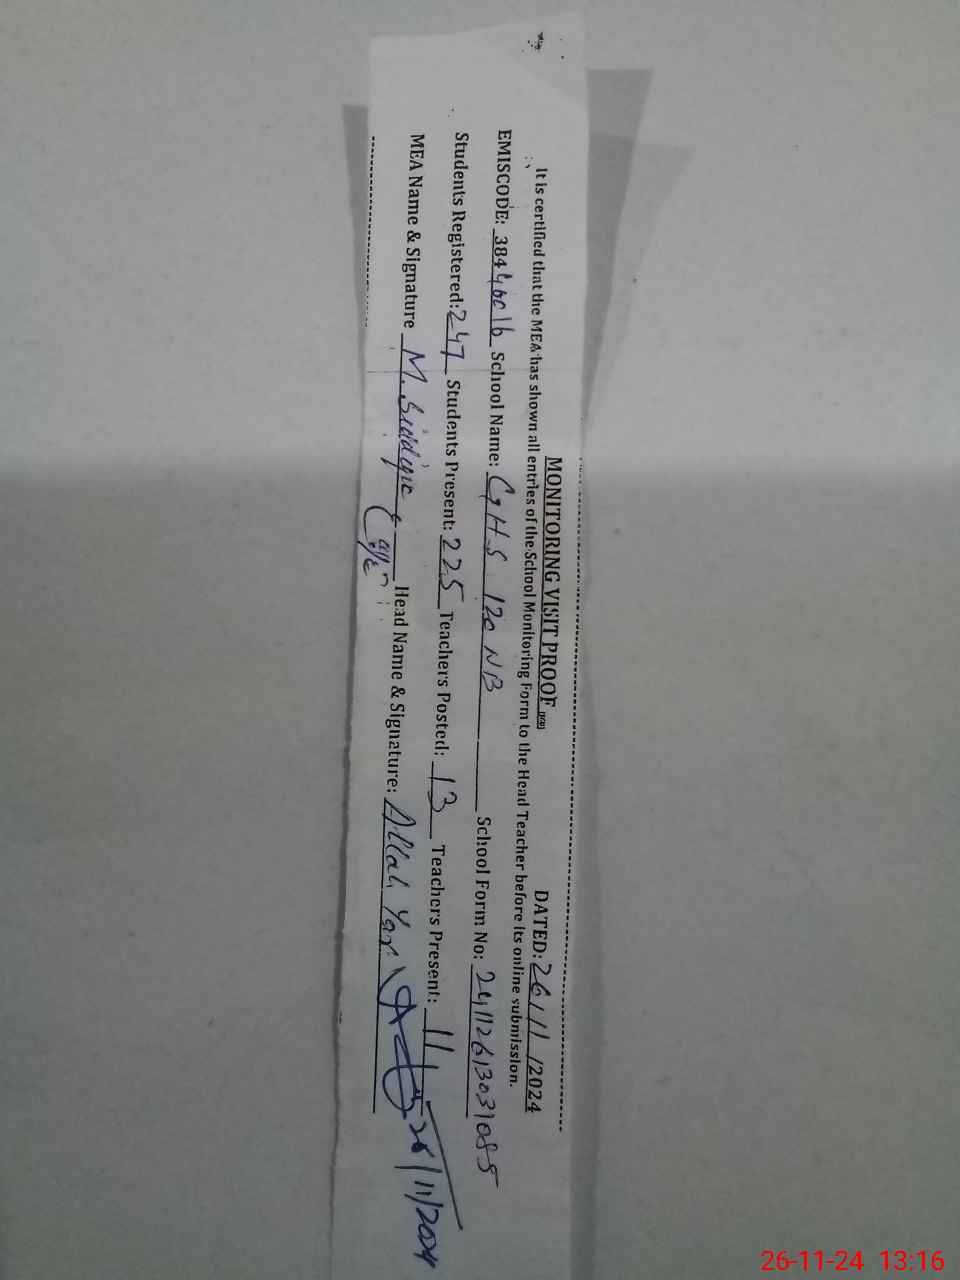 MONITORING VISIT PROOF DATED: 26/11/2024
It is certified that the MEA has shown all entries of the School Monitoring Form to the Head Teacher before its online submission.
EMISCODE: 38440016 School Name: GHS 120 NB School Form No: 24112613031085
Students Registered: 247 Students Present: 225 Teachers Posted: 13 Teachers Present: 11
MEA Name & Signature M. Siddique Head Name & Signature: Allah Yar 26/11/2024
26-11-24 13:16